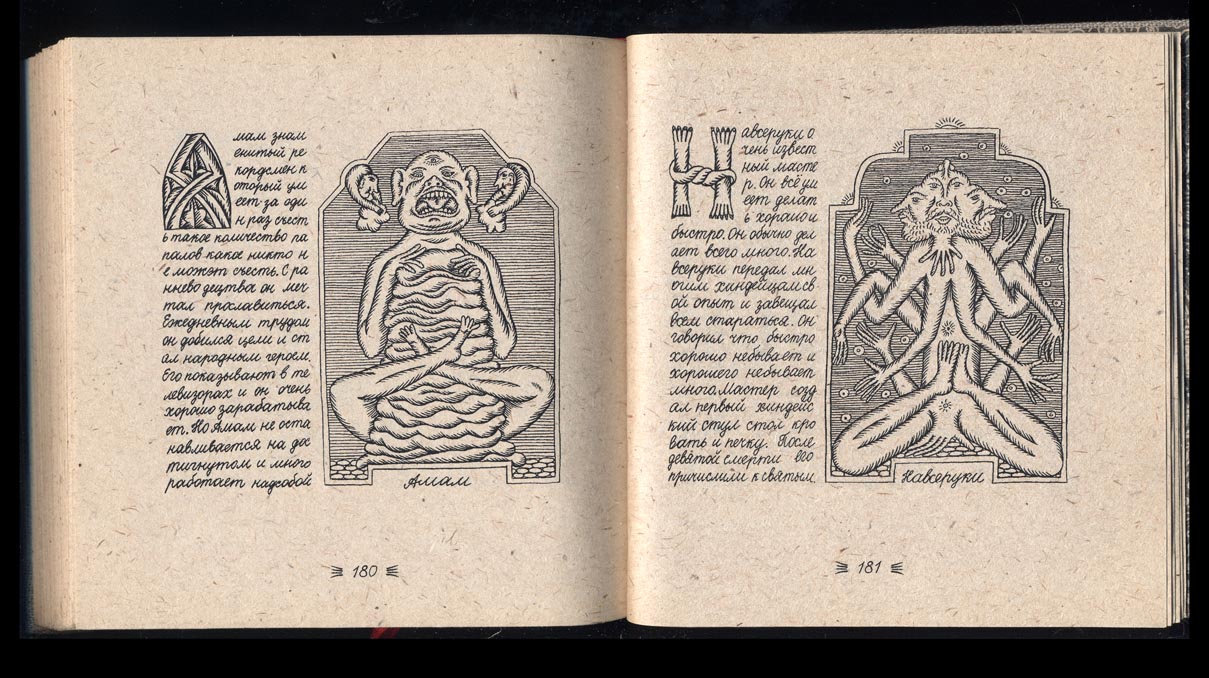 Амам знам
енитый ре
кордсмен к
оторый ум
еет за оди
н раз съест
ь такое количество па
палов какое никто н
е может съесть. С ра
ннево децтва он меч
тал прославиться.
Ежедневным трудом
он добился цели и ст
ал народным героем.
Его показывают в те
левизорах и он очень
хорошо зарабатыва
ет. Но Амам не оста
навливается на дос
тигнутом и много
работает надсобой
Амам
180
Навсеруки о
чень извест
ный масте
р. Он всё ум
еет делат
ь хорошо и
быстро. Он обычно дел
ает всего много. На
всеруки передал мн
огим хиндейцам св
ой опыт и завещал
всем стараться. Он
говорил что быстро
хорошо небывает и
хорошего небывает
много. Мастер созд
ал первый хиндейс
кий стул стол кро
вать и печку. После
девятой смерти ево
причислили к святым.
Навсеруки
181